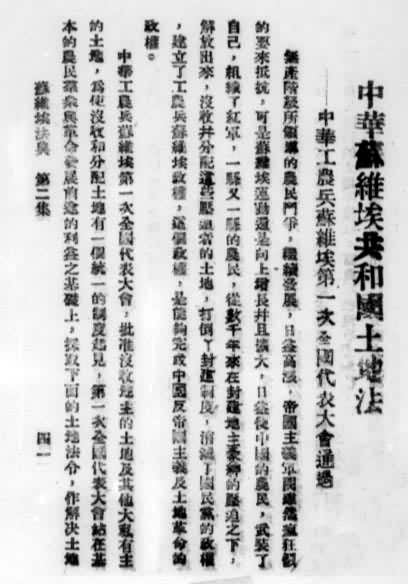 中華蘇維埃共和國土地法
——中華工農兵蘇維埃第一次全國代表大會通過
無產階級所領導的農民鬥爭，繼續發展，日益高漲，帝國主義軍閥雖然瘋狂似
的要來抵抗，可是蘇維埃運動還是向上增長幷且擴大，日益使中國的農民，武裝了
自己，組織了紅軍，一縣又一縣的農民，從數千年來在封建地主豪紳的壓迫之下，
解放出來，沒收幷分配這些壓迫者的土地，打倒了封建制度，消滅了國民黨的政權
，建立了工農兵蘇維埃政權，這個政權，是能夠完成中國反帝國主義及土地革命的
政權。
中華工農兵蘇維埃第一次全國代表大會，批准沒收地主的土地及其他大私有主
的土地，爲使沒收和分配土地有一個統一的制度起見，第一次全國代表大會站在基
本的農民羣衆與革命發展前途的利益之基礎上，採取下面的土地法令，作解決土地
蘇維埃法典　第二集　四一